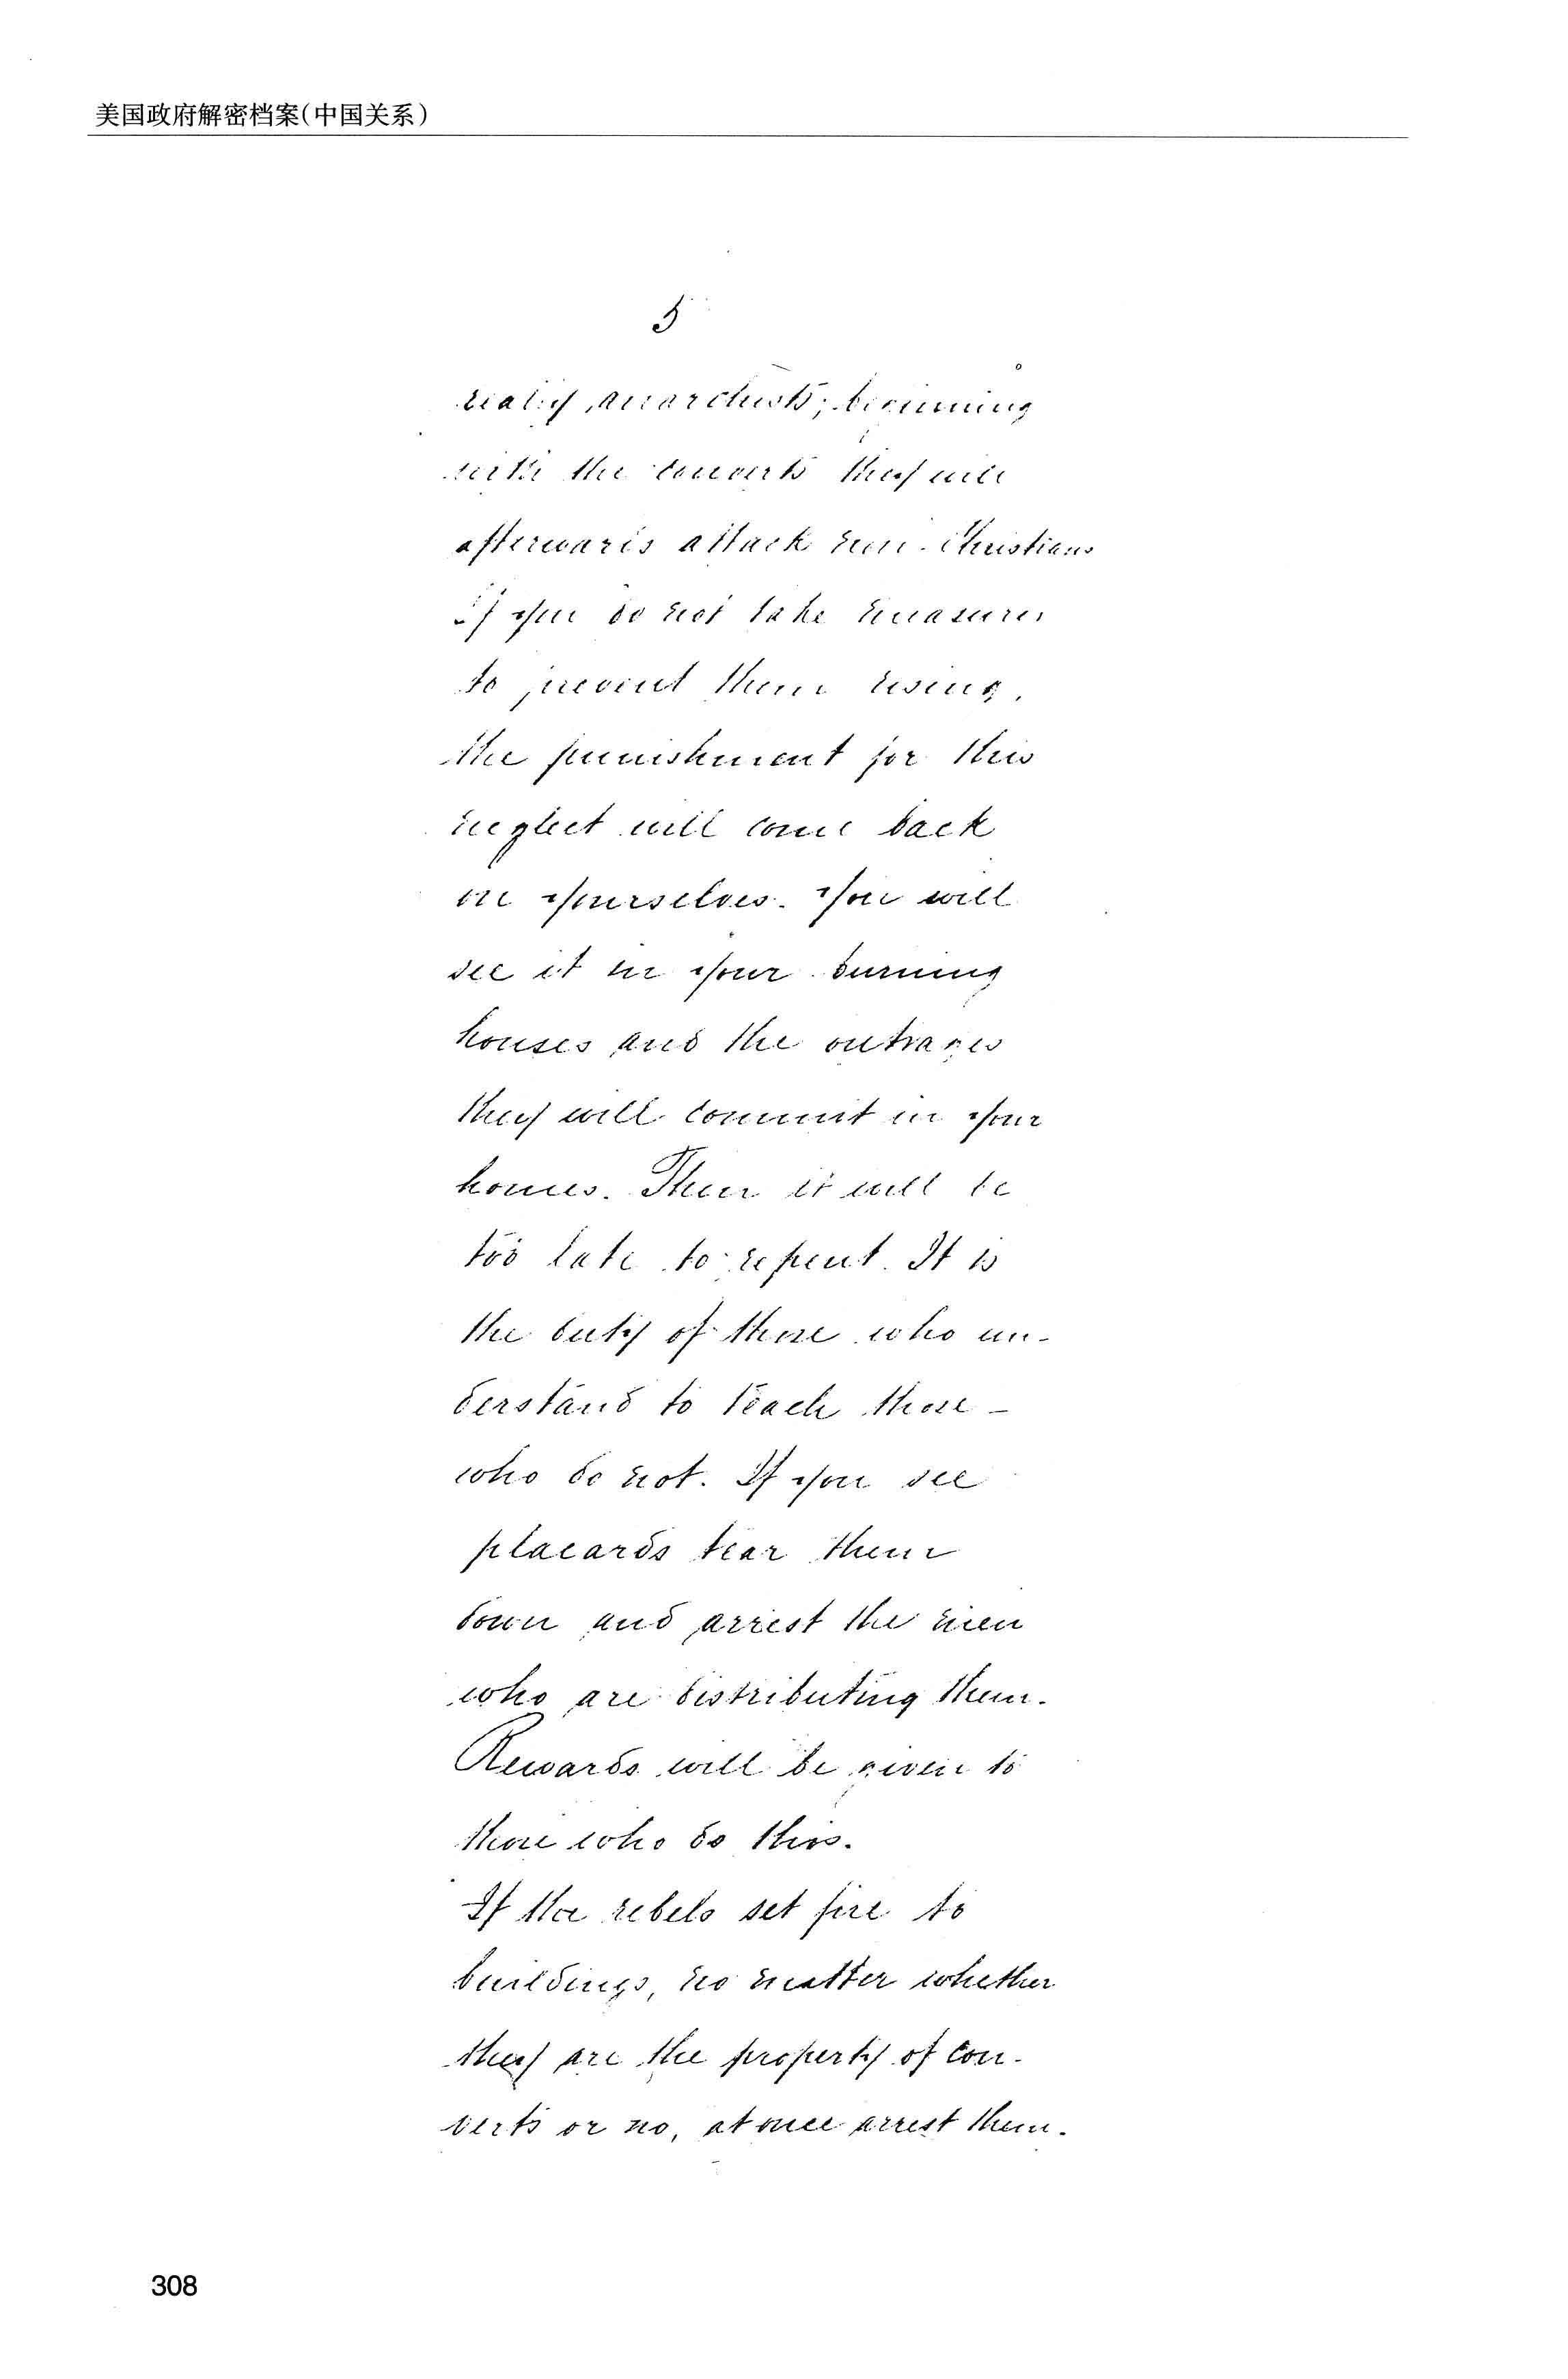 美国政府解密档案(中国关系)
5
really anarchists; beginning
with the converts they will
afterwards attack non-Christians
If you do not take measures
to prevent them rising,
the punishment for this
neglect will come back
on yourselves. You will
see it in your burning
houses and the outrages
they will commit in your
homes. Then it will be
too late to repent. It is
the duty of those who un-
derstand to teach those -
who do not. If you see
placards tear them
down and arrest the men
who are distributing them.
Rewards will be given to
those who do this.
If the rebels set fire to
buildings, no matter whether
they are the property of con-
verts or no, at once arrest them.
308